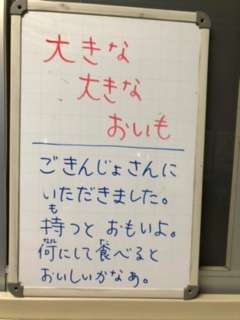 大きな
大きな
おいも
ごきんじょさんに
いただきました。
持つと おもいよ。
何にして食べると
おいしいかなあ。